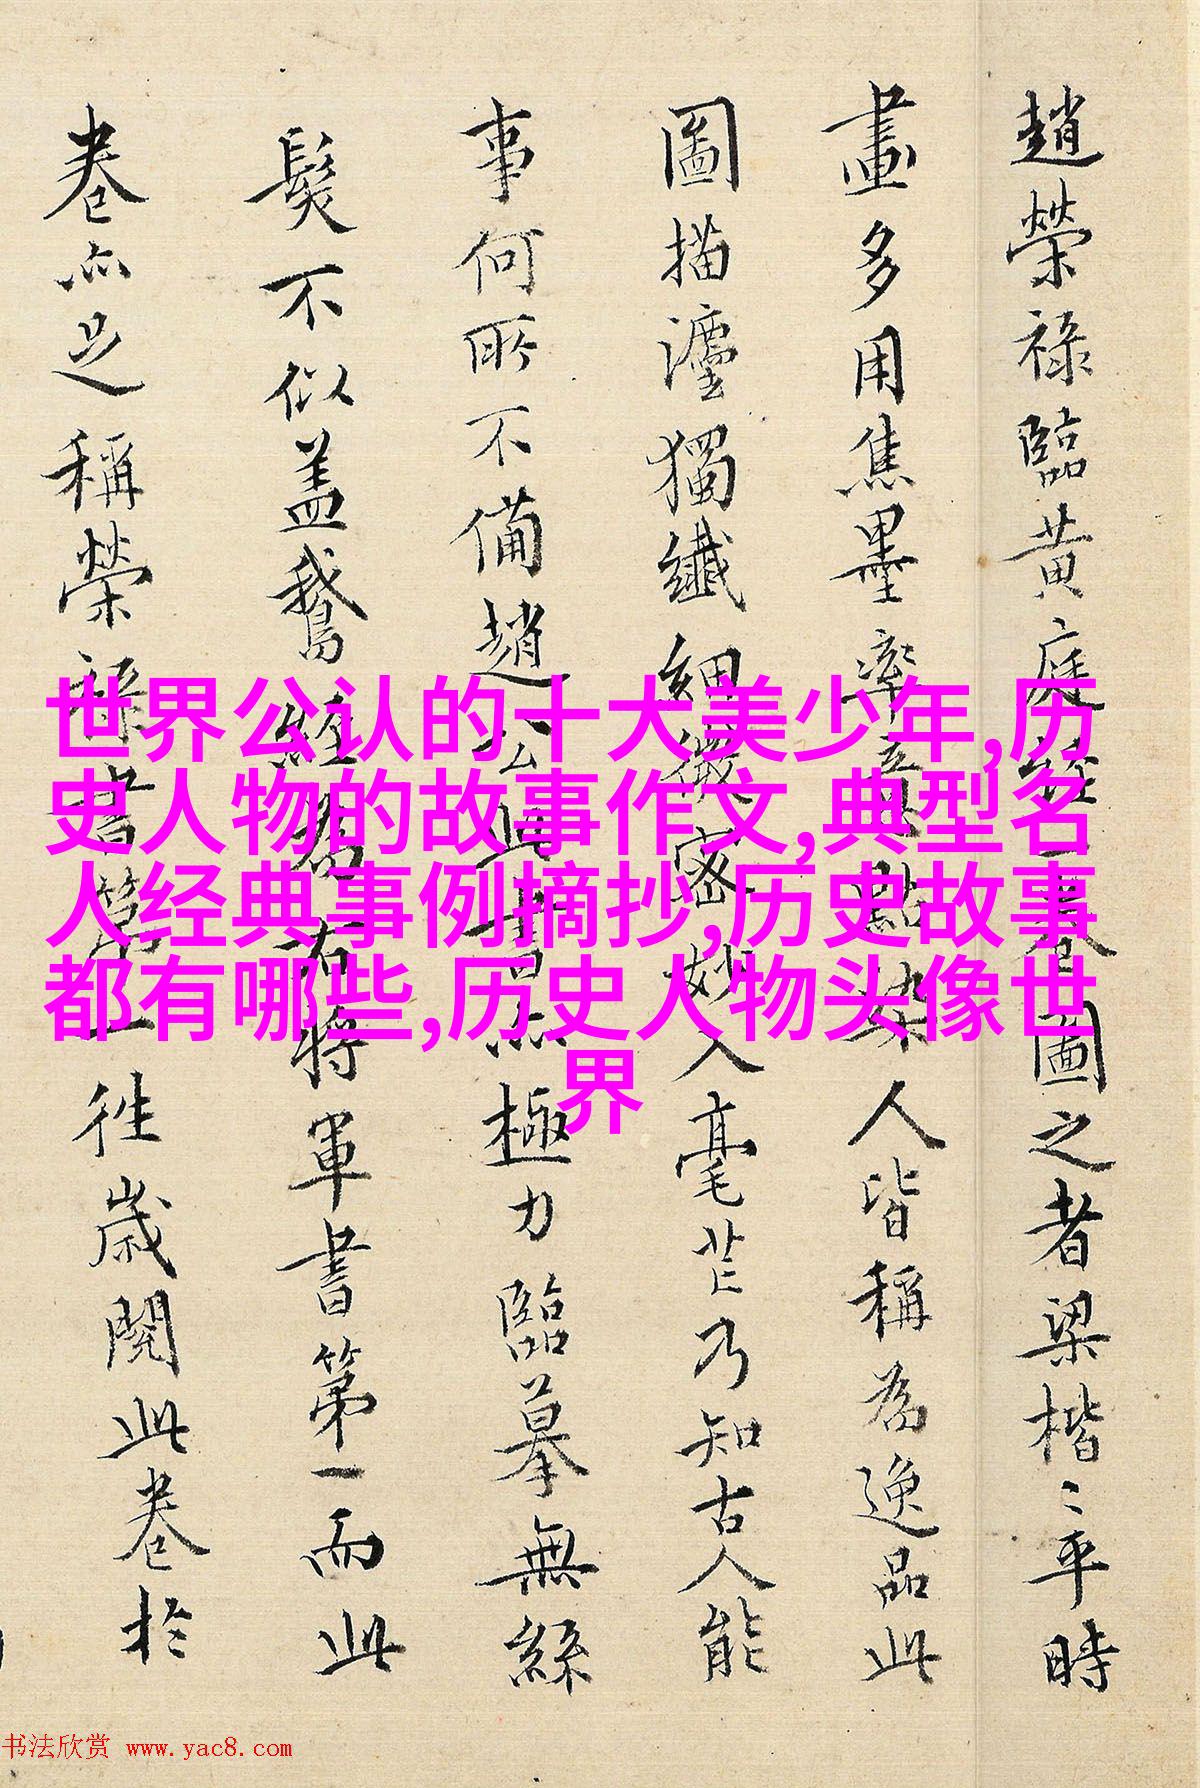 趙榮祿臨黃庭經一卷圖之者梁楷〻平時
畫多用焦墨率意點染人皆稱為逸品此
圖描瀍獨纖細微密妙入毫芒乃知古人能
事何所不備趙公此書亦極力臨摹無絲
髮不似蓋鵝經為右將軍書第一而此
卷亦足稱榮祿書第一往歲閱此卷於
世界公认的十大美少年,历
史人物的故事作文,典型名
人经典事例摘抄,历史故事
都有哪些,历史人物头像世
界
书法欣赏 www.yac8.com